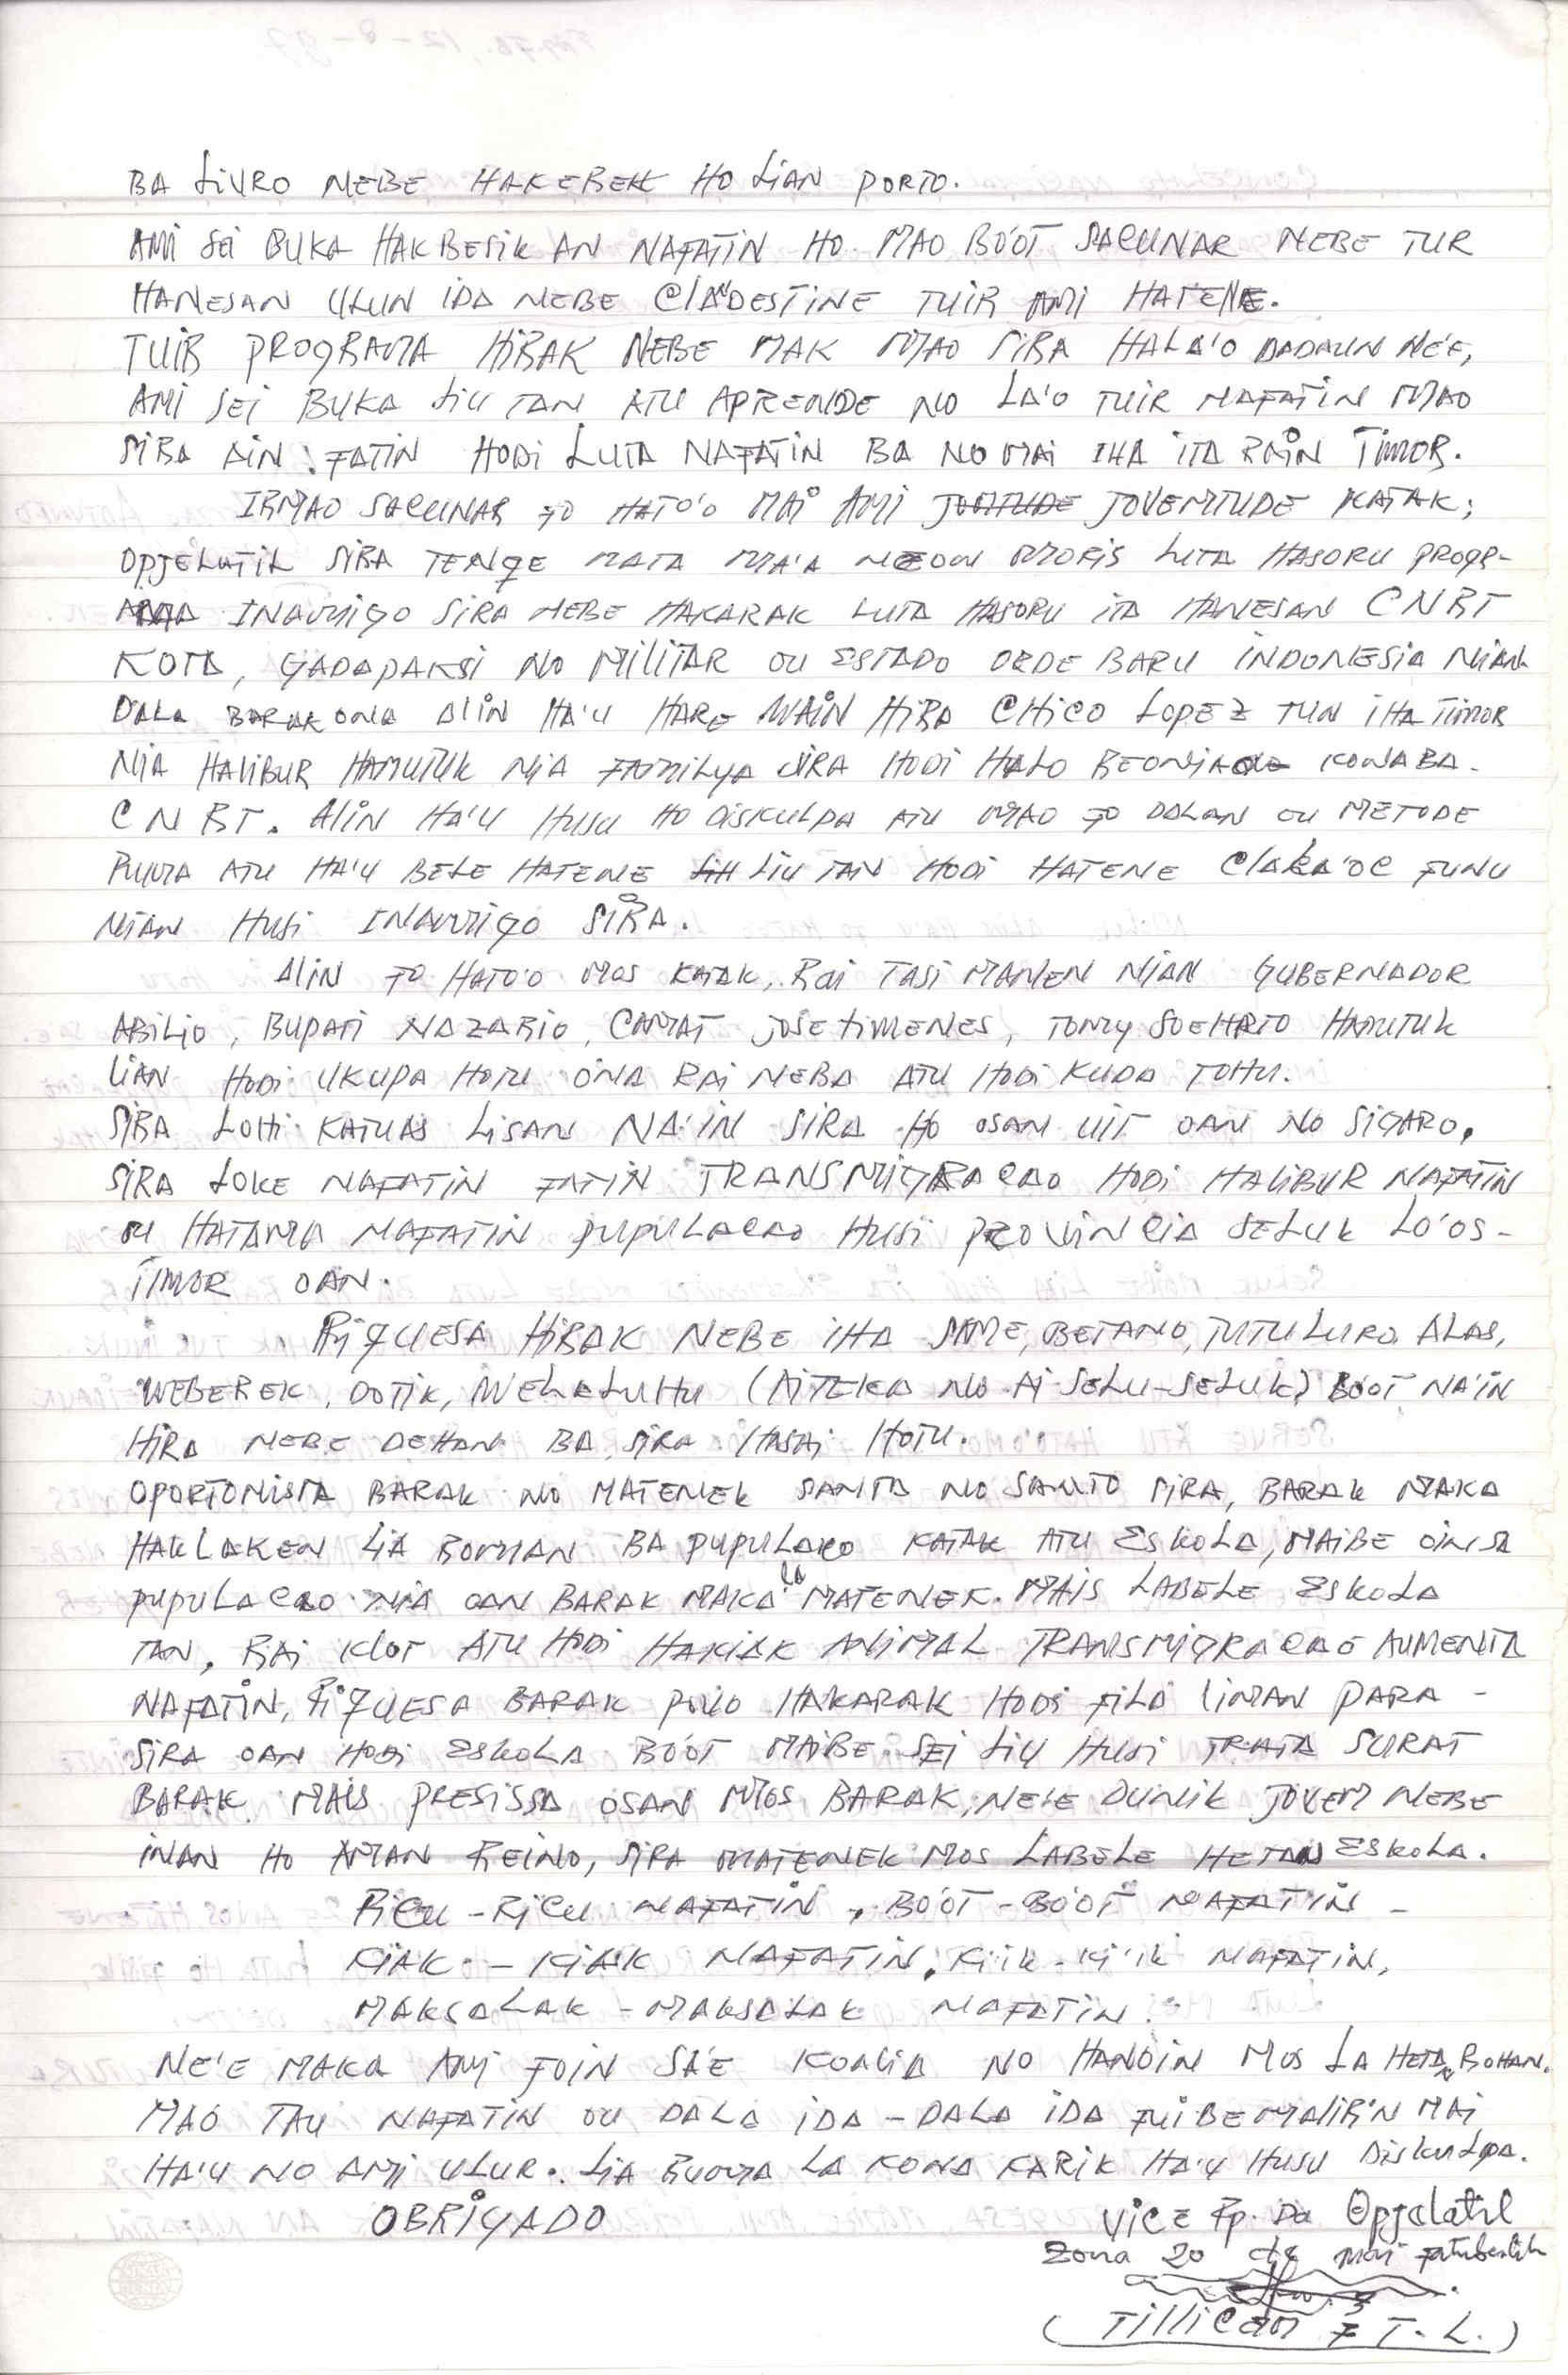 BA LIVRO NEBE HAKEREK HO LIAN PORTO.
AMI SEI BUKA HAKBESIK AN NAFATIN HO MAO BO'OT SACUNAR NEBE TUR
HANESAN ULUN IDA NEBE CLANDESTINE TUIR AMI HATENE.
TUIR PROGRAMA HIRAK NEBE MAK MAO SIRA HALA'O DADAUN NE'E,
AMI SEI BUKA LIU TAN ATU APRENDE NO LA'O TUIR NAFATIN MAO
SIRA AIN FATIN HODI LUTA NAFATIN BA NO MAI IHA ITA RAIN TIMOR.
IRMAO SACUNAR FO HATO'O MAI AMI JOVENTUDE KATAK;
OPJELATIL SIRA TENQE MATA MA'A NEON MORIS LUTA HASORU PROGR-
AMA INAMIGO SIRA NEBE HAKARAK LUTA HASORU ITA HANESAN CNRT
KOTA, GADAPAKSI NO MILITAR OU ESTADO ORDE BARU INDONESIA NIAN
DALA BARAK ONA ALIN HA'U HARE WAIN HIRA CHICO LOPEZ TUN IHA TIMOR
NIA HALIBUR HAMUTUK NIA FAMILYA SIRA HODI HALO REONIAO KONABA-
CNRT. ALIN HA'U HUSU HO DISKULPA ATU MAO FO DALAN OU METODE
RUMA ATU HA'U BELE HATENE LIU TAN HODI HATENE CLAKA'OC FUNU
NIAN HUSI INAMIGO SIRA.
ALIN FO HATO'O MOS KATAK, RAI TASI MANEN NIAN GUBERNADOR
ABILIO, BUPATI NAZARIO, CAMAT JOSE XIMENES, TOMY SOEHRTO HAMUTUK
LIAN HODI UKUPA HOTU ONA RAI NEBA ATU HODI KUDA TOHU.
SIRA LOHI KATUAS LISAN NA'IN SIRA HO OSAN UIT OAN NO SIGARO.
SIRA LOKE NAFATIN FATIN TRANSMIGRACAO HODI HALIBUR NAFATIN
OU HATAMA NAFATIN PUPULACAO HUSI PROVINCIA SELUK LO'OS-
TIMOR OAN.
RIQUESA HIRAK NEBE IHA SAME, BETANO, TUTULURO, ALAS,
WEBEREK, DOTIK, WELALUHU (AITEKA NO AI SELU-SELUK) BOOT NA'IN
HIRA NEBE DEHAN BA SIRA HASAI HOTU.
OPORTONISTA BARAK NO MATENEK SANTA NO SANTO SIRA, BARAK MAKA
HAKLAKEN LIA ROMAN BA PUPULACO KATAK ATU ESKOLA, MAIBE OINSA
PUPULACAO NIA OAN BARAK MAKA la MATENEK. MAIS LABELE ESKOLA
TAN, RAI KLOT ATU HODI HAKIAK ANIMAL TRANSMIGRACAO AUMENTA
NAFATIN, RIQUESA BARAK POVO HAKARAK HODI FILA LIMAN PARA -
SIRA OAN HODI ESKOLA BO'OT MAIBE SEI LIU HUSI TRATA SURAT
BARAK MAIS PRESISSA OSAN MOS BARAK, NE'E DUNIK JOVEM NEBE
INAN HO AMAN REINO, SIRA MATENEK MOS LABELE HETAN ESKOLA.
RICU - RICU NAFATIN, BO'OT - BO'OT NAFATIN -
KIAK - KIAK NAFATIN, KI'IK - KI'IK NAFATIN,
MAKSALAK - MAKSALAK NAFATIN.
NE'E MAKA AMI FOIN SA'E KOALIA NO HANOIN MOS LA HETAN ROHAN.
MAO TAU NAFATIN OU DALA IDA - DALA IDA FUIBEMALIRIN MAI
HA'U NO AMI ULUR. LIA RUMA LA KONA KARIK HA'U HUSU DISKULPA.
OBRIGADO
VICE Rp. Da Opjelatil
Zona 20 de Mai Fatuberlih
(TILLICAN F T. L.)